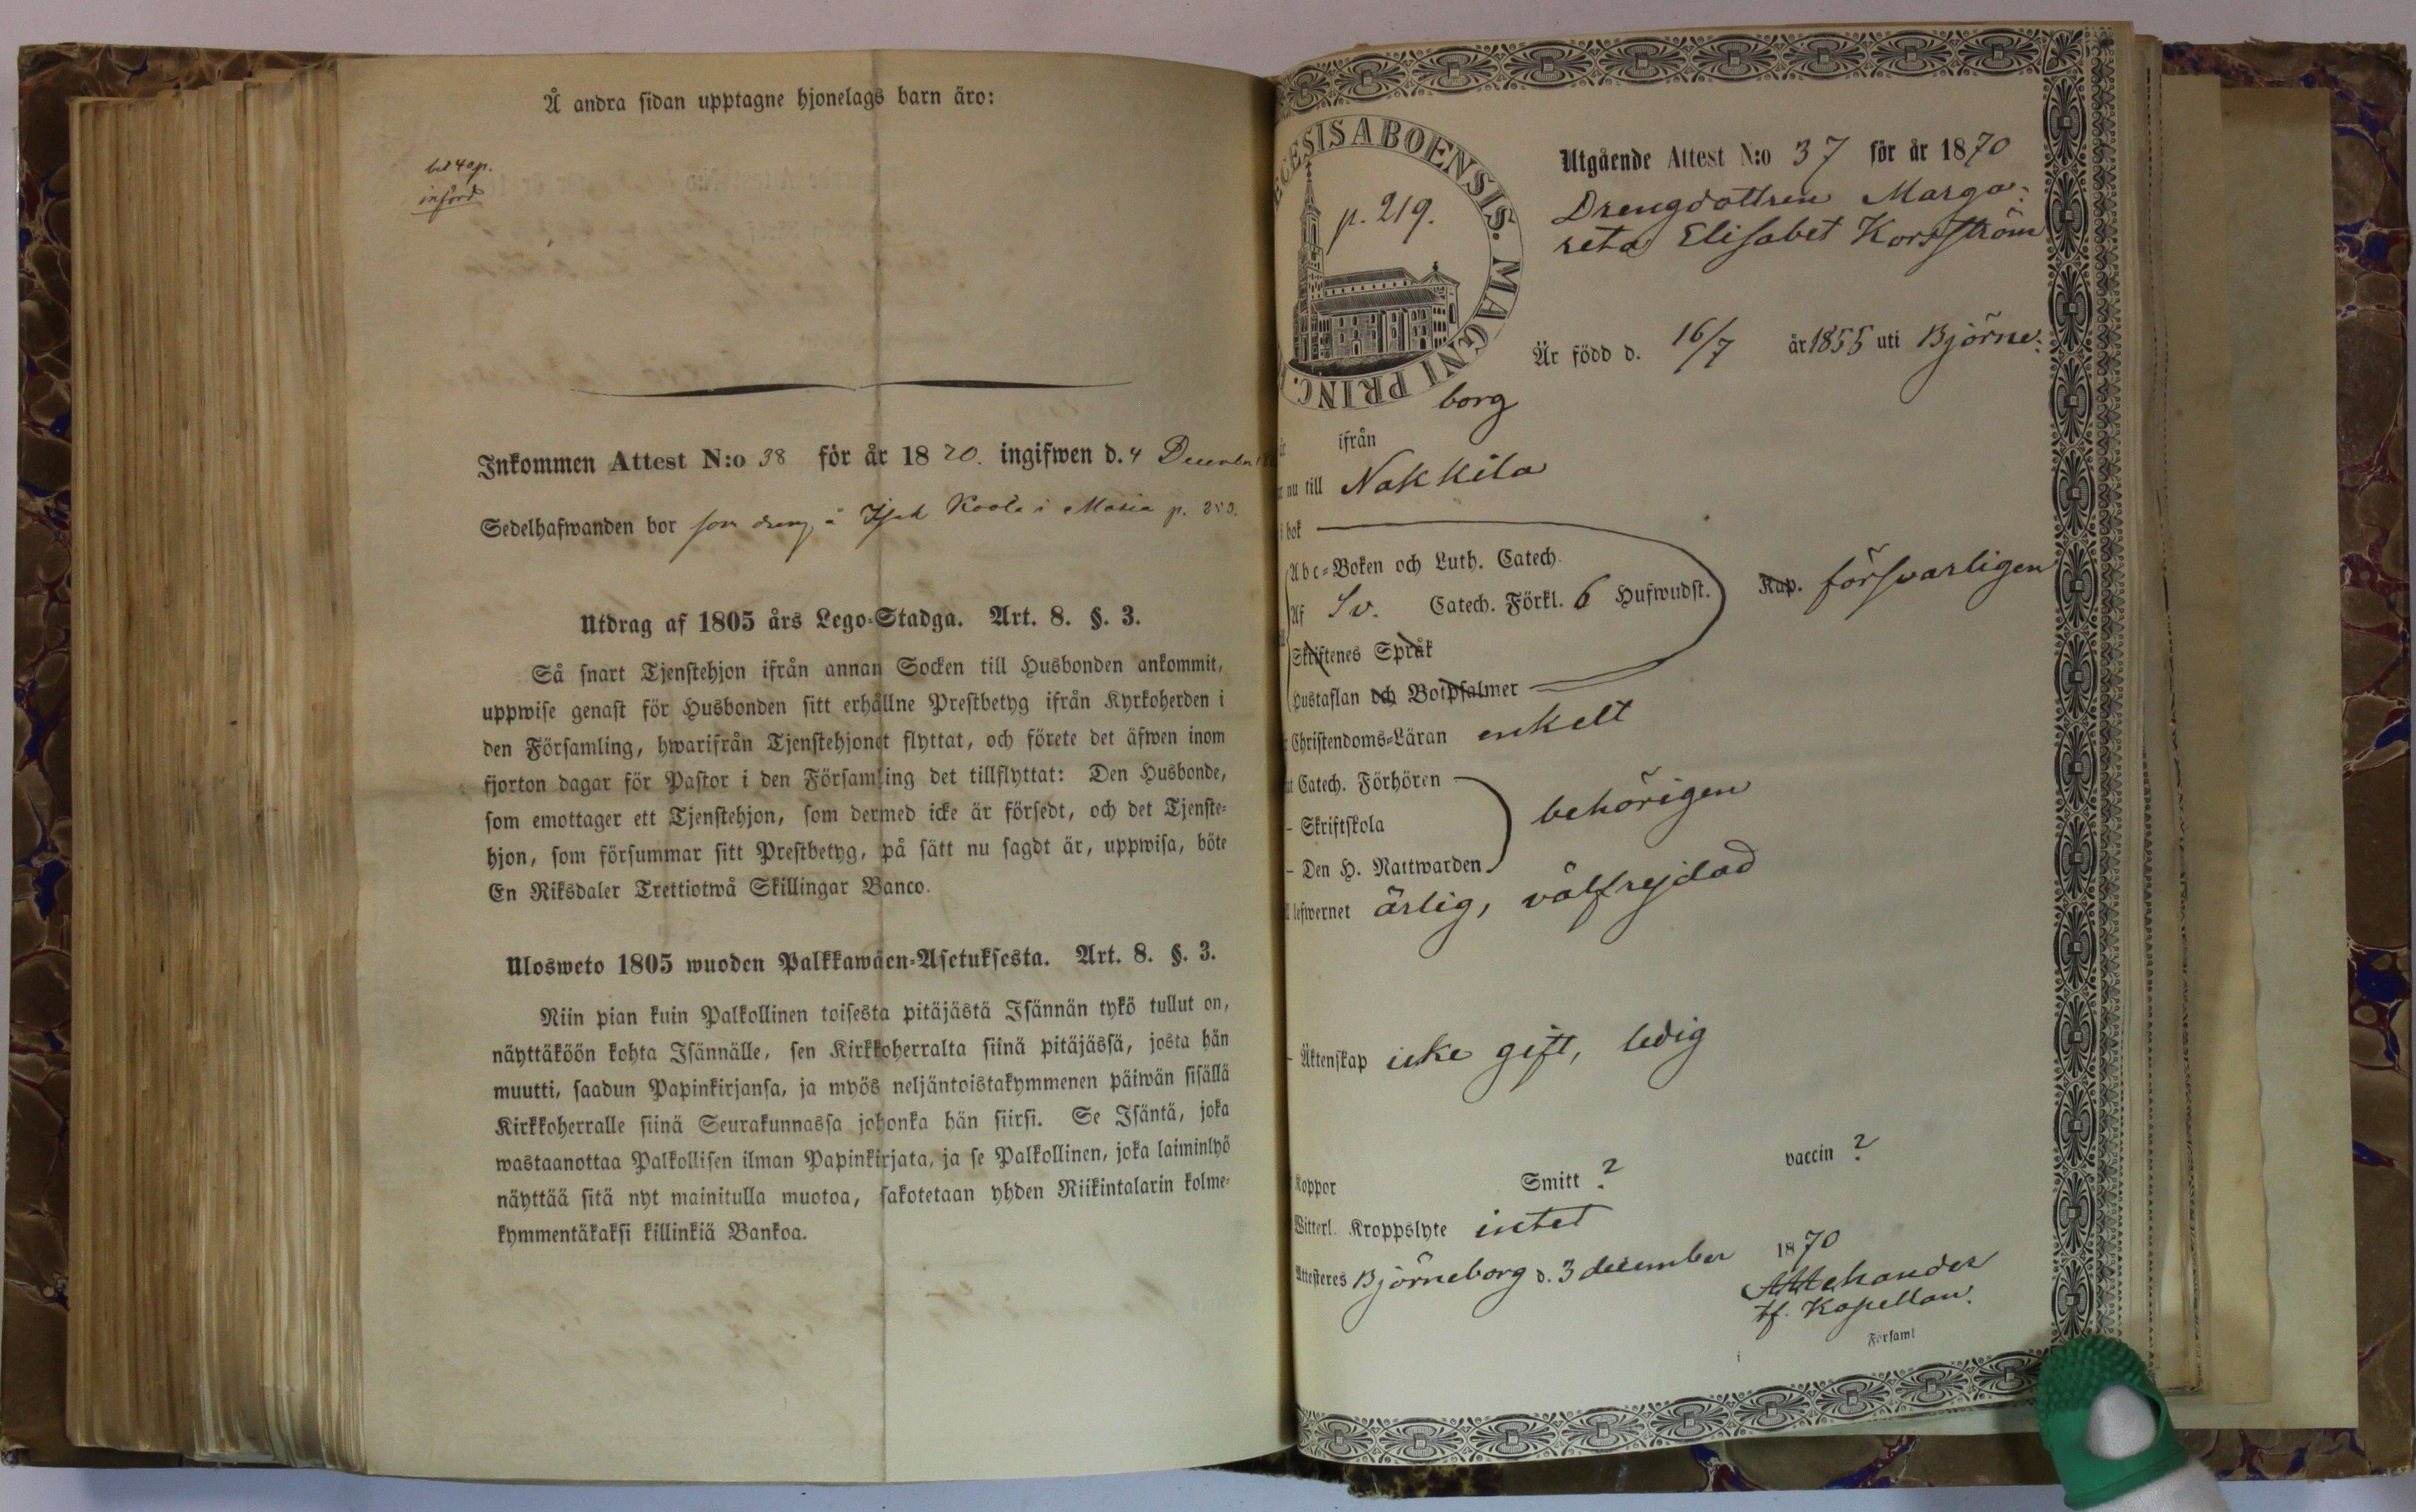 Å andra sidan upptagne hjonelags barn äro:
bet 40 p.
införd
Inkommen Attest N:o 38 för år 1870. ingifwen d. 4 December
Sedelhafwanden bor som dreng å Koola i Masia p. 253.
Utdrag af 1805 års Lego-Stadga. Art. 8. §. 3.
Så snart Tjenstehjon ifrån annan Socken till Husbonden ankommit,
uppwise genast för Husbonden sitt erhållne Prestbetyg ifrån Kyrkoherden i
den Församling, hwarifrån Tjenstehjonet flyttat, och förete det äfwen inom
fjorton dagar för Pastor i den Församling det tillflyttat: Den Husbonde,
som emottager ett Tjenstehjon, som dermed icke är försedt, och det Tjenste-
hjon, som försummar sitt Prestbetyg, på sätt nu sagdt är, uppwisa, böte
En Riksdaler Trettiotwå Skillingar Banco.
Ulosweto 1805 wuoden Palkkawäen-Asetuksesta. Art. 8. §. 3.
Niin pian kuin Palkollinen toisesta pitäjästä Isännän tykö tullut on,
näyttäköön kohta Isännälle, sen Kirkkoherralta siinä pitäjässä, josta hän
muutti, saadun Papinkirjansa, ja myös neljäntoistakymmenen päiwän sisällä
Kirkkoherralle siinä Seurakunnassa johonka hän siirsi. Se Isäntä, joka
wastaanottaa Palkollisen ilman Papinkirjata, ja se Palkollinen, joka laiminlyö
näyttää sitä nyt mainitulla muotoa, sakotetaan yhden Riikintalarin kolme-
kymmentäkaksi killinkiä Bankoa.
ECESIS ABOENSIS. MAGNI PRINC.
p. 219.
Utgående Attest N:o 37 för år 1870
Drengdottren Marga-
reta Elisabet Korsström
Är född d. 16/7 år 1855 uti Björne-
borg
ifrån
nu till Nakkila
i bok
Abc-Boken och Luth. Catech.
Af Sv. Catech. Förkl. 6 Hufwudst. Kap. försvarligen
Skriftenes Språk
Hustaflan och Botpsalmer
Christendoms-Läran enkelt
Catech. Förhören
- Skriftskola behörigen
- Den H. Nattwarden
lefwernet ärlig, välfrejdad
- Äktenskap icke gift, ledig
Koppor Smitt ? vaccin ?
Witterl. Kroppslyte intet
Attesteres Björneborg d. 3 december 1870
tf. Kapellan.
i Församl